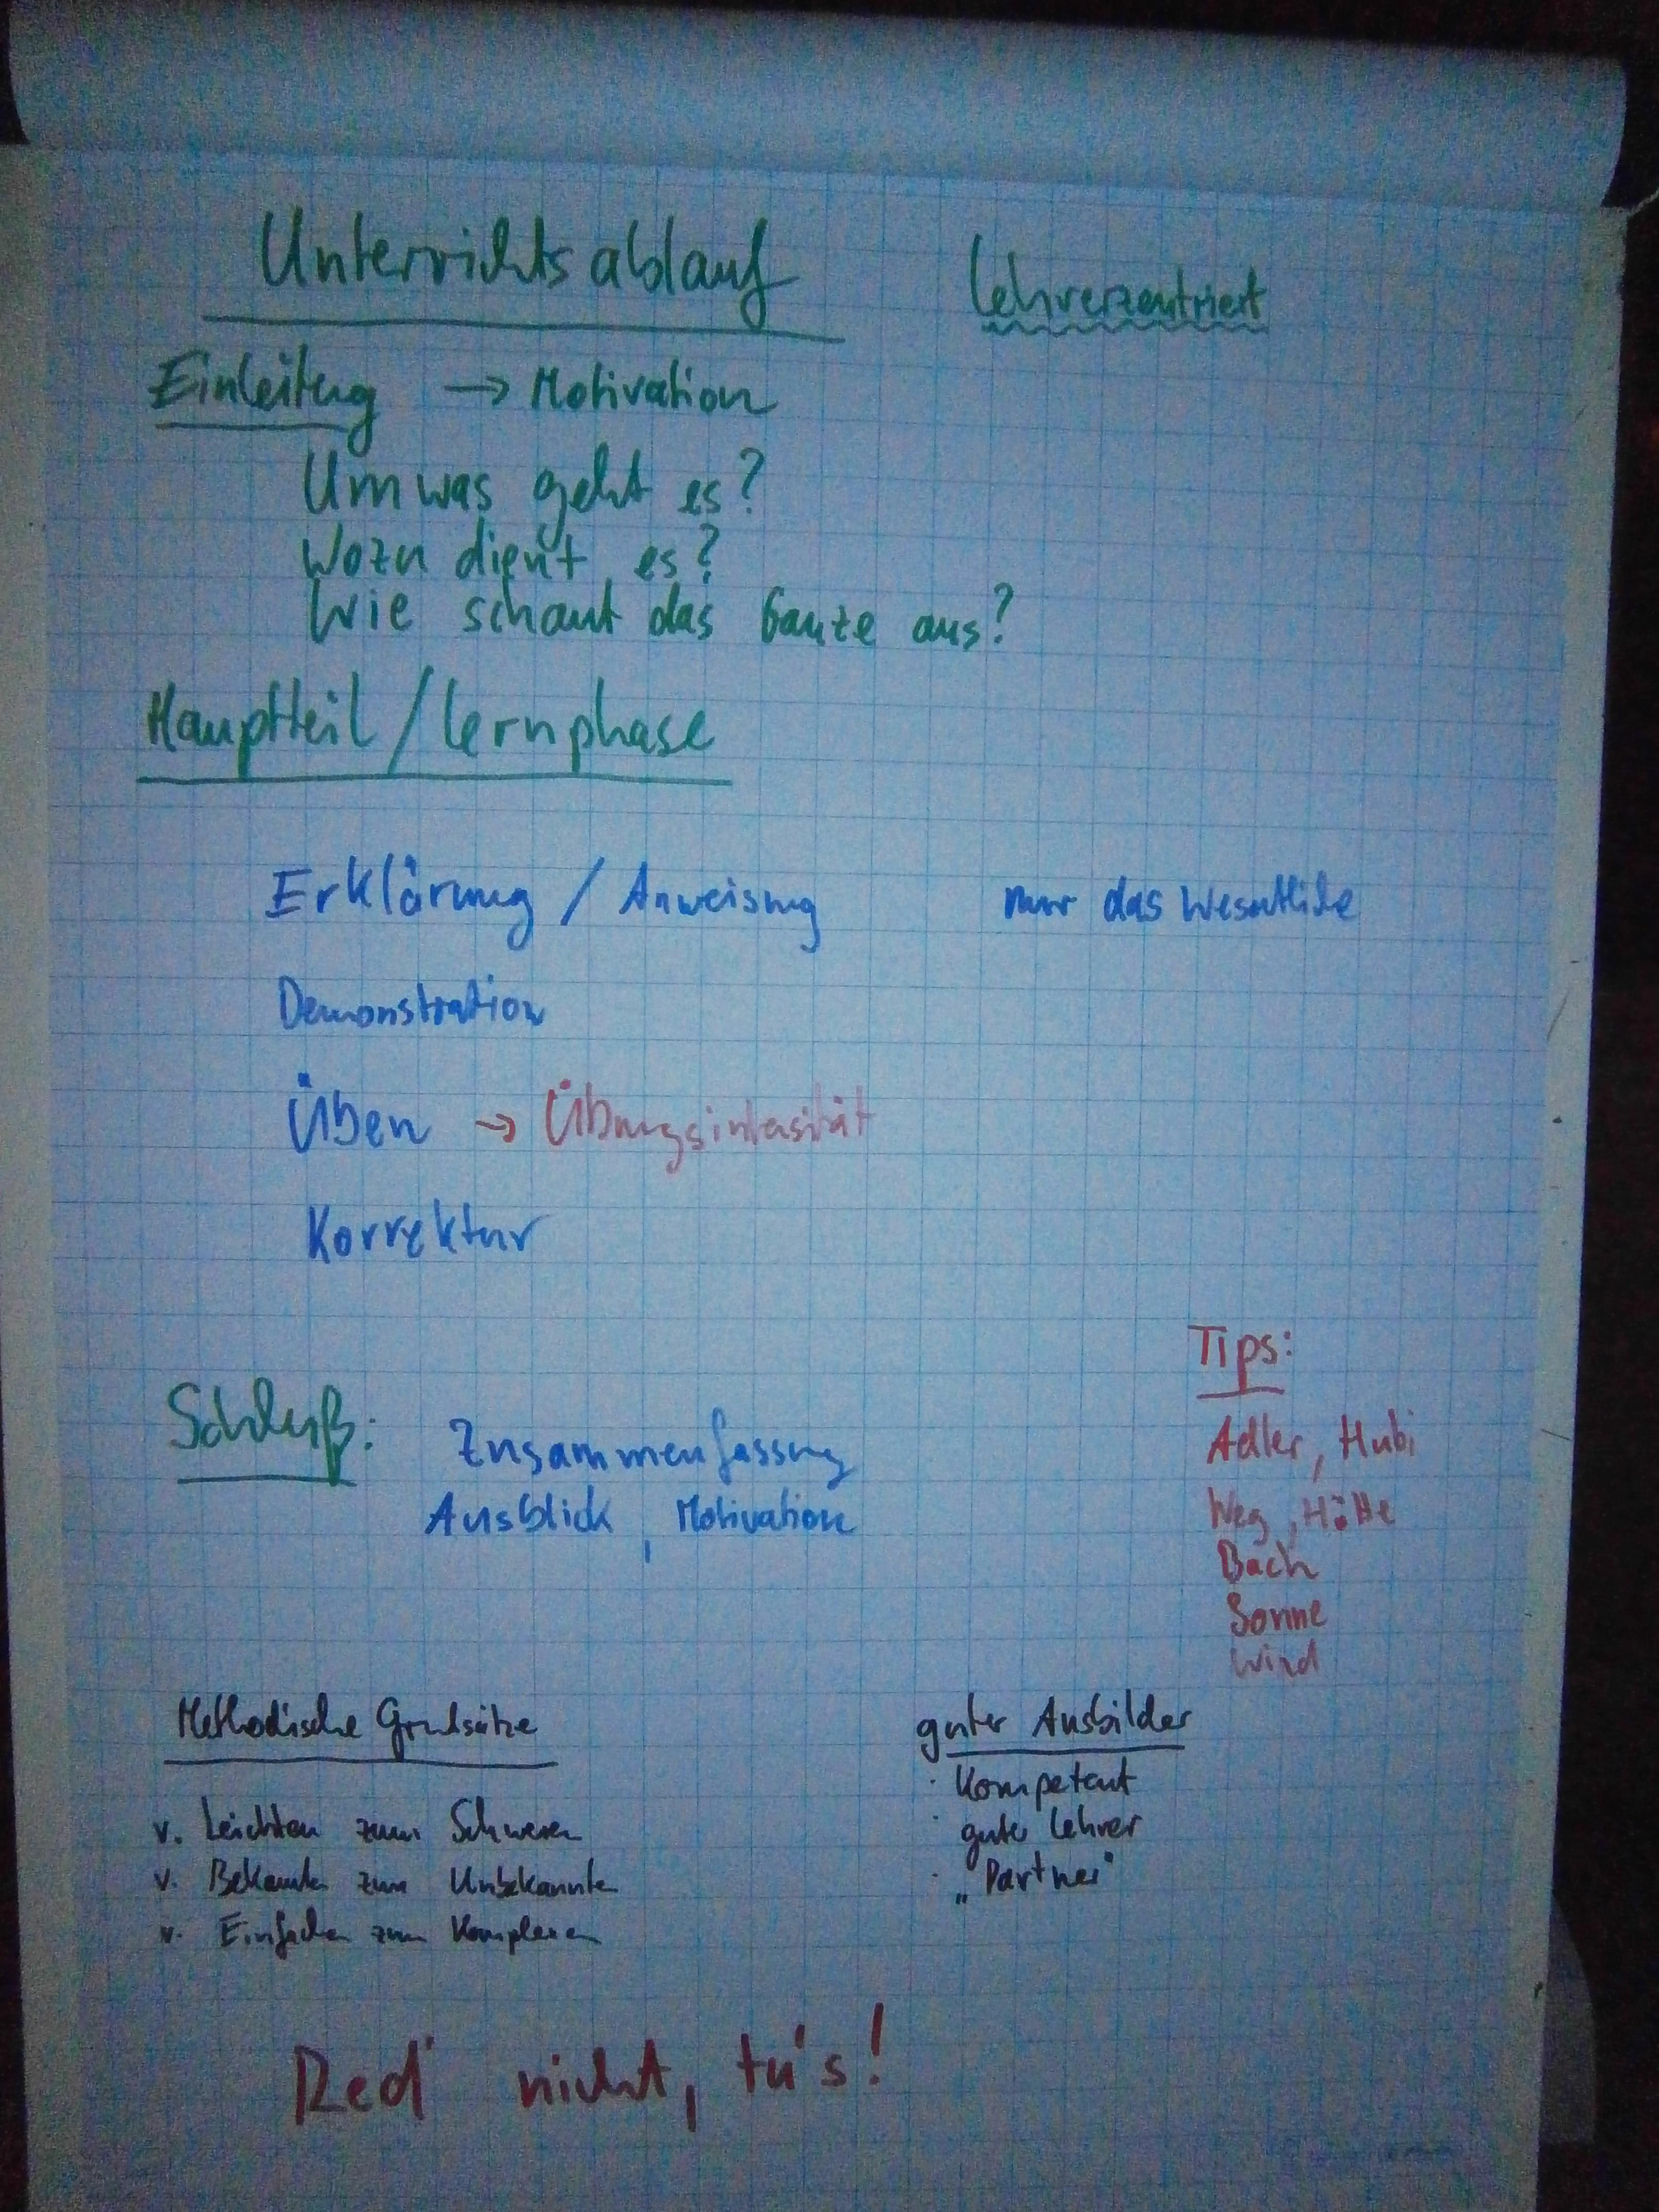 Unterrichtsablauf lehrerzentriert
Einleitung → Motivation
Um was geht es?
Wozu dient es?
Wie schaut das Ganze aus?
Hauptteil / Lernphase
Erklärung / Anweisung nur das Wesentliche
Demonstration
Üben → Übungsintensität
Korrektur
Schluß: Zusammenfassung
Ausblick, Motivation
Tips:
Adler, Hubi
Weg, Hütte
Bach
Sonne
Wind
Methodische Grundsätze
v. Leichten zum Schweren
v. Bekannten zum Unbekannten
v. Einfachen zum Komplexen
guter Ausbilder
· Kompetent
· guter Lehrer
· „Partner"
Red' nicht, tu's!